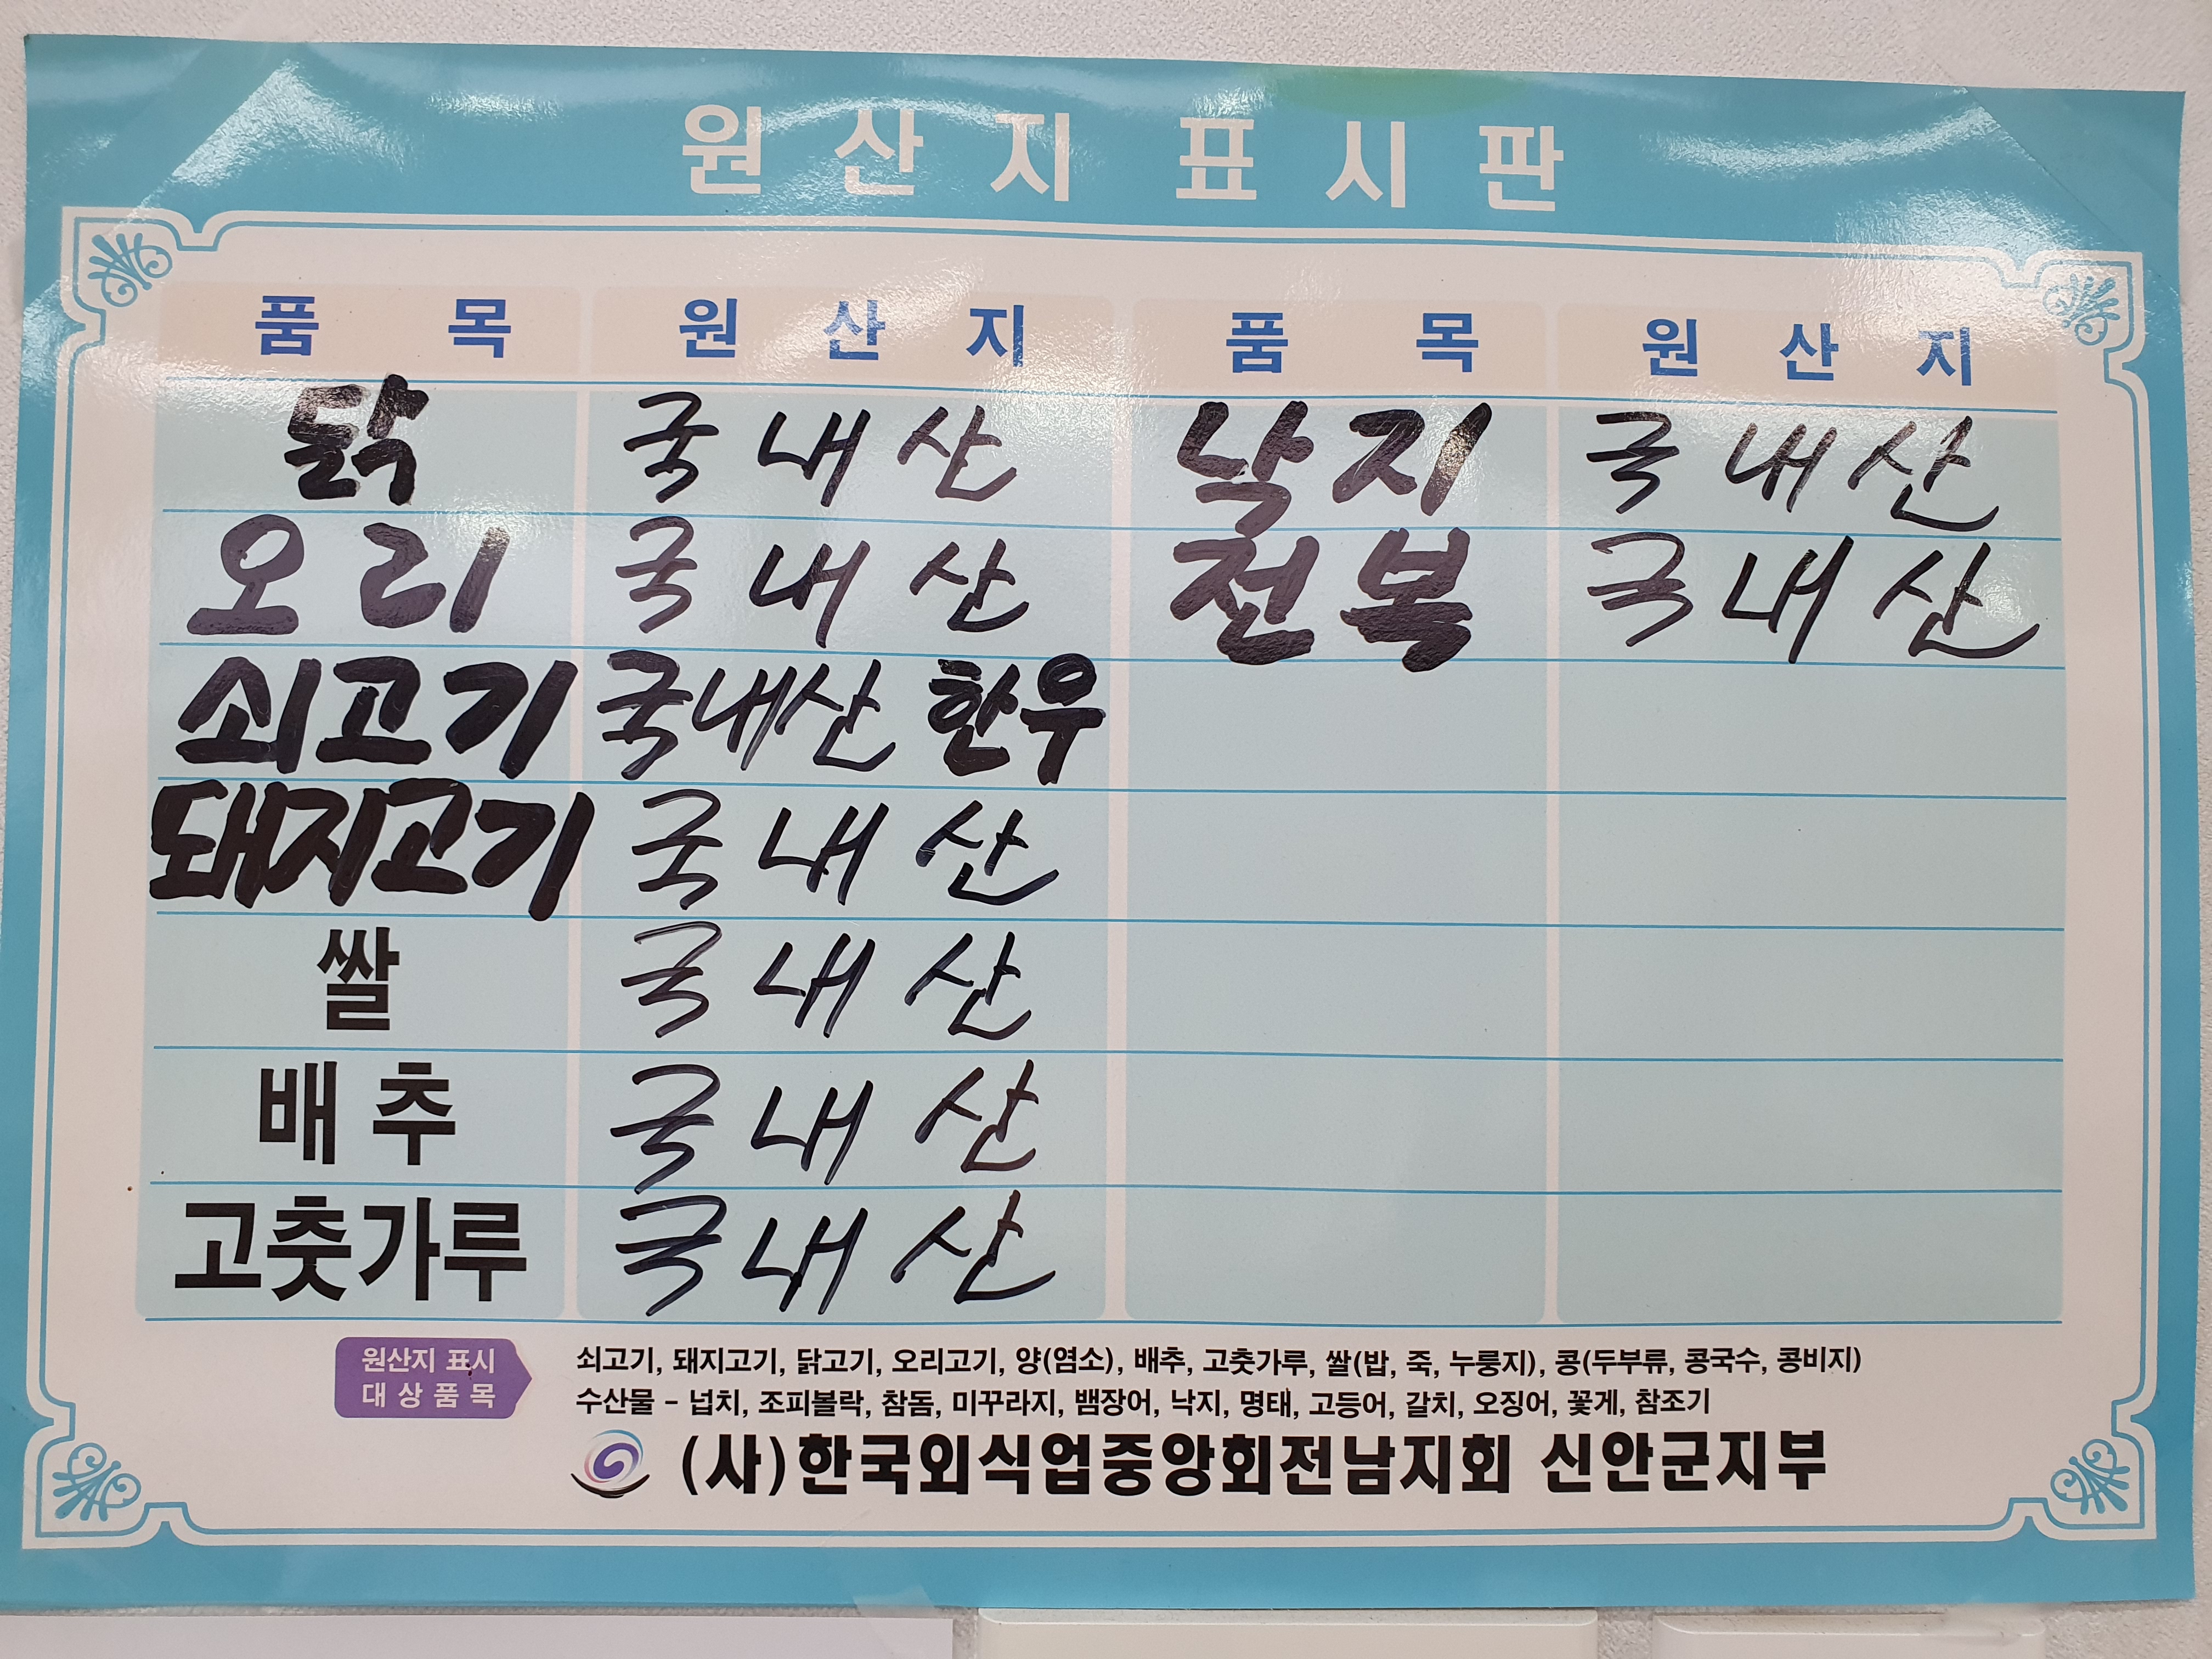 원산지 표시판
품목 원산지 품목 원산지
닭 국내산 낙지 국내산
오리 국내산 전복 국내산
쇠고기 국내산 한우
돼지고기 국내산
쌀 국내산
배추 국내산
고춧가루 국내산
원산지 표시
대상품목
쇠고기, 돼지고기, 닭고기, 오리고기, 양(염소), 배추, 고춧가루, 쌀(밥, 죽, 누룽지), 콩(두부류, 콩국수, 콩비지)
수산물 - 넙치, 조피볼락, 참돔, 미꾸라지, 뱀장어, 낙지, 명태, 고등어, 갈치, 오징어, 꽃게, 참조기
(사)한국외식업중앙회전남지회 신안군지부